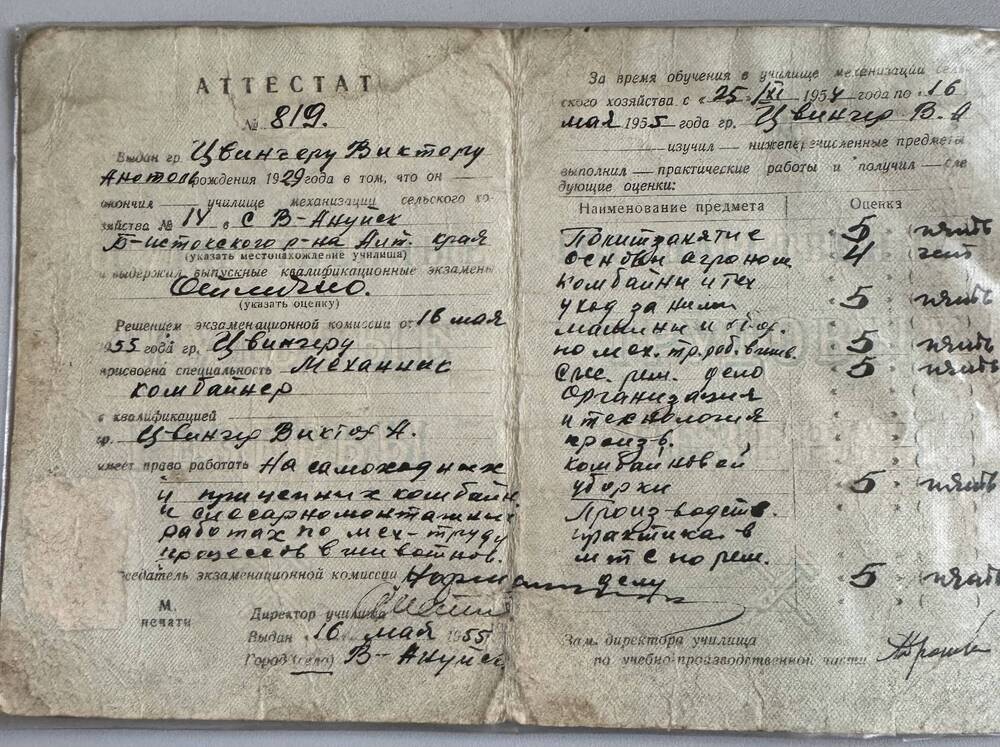 АТТЕСТАТ
№ 819.
Выдан гр. Цвингеру Виктору
Анатоль рождения 1929 года в том, что он
окончил училище механизации сельского хо-
зяйства № 14 в с В-Ануйск
Б-истокского р-на Алт. края
(указать местонахождение училища)
и выдержил выпускные квалификационные экзамены
Отлично.
(указать оценку)
Решением экзаменационной комиссии от 16 мая
1955 года гр. Цвингеру
присвоена специальность Механник
комбайнер
с квалификацией
гр. Цвингер Виктор А.
имеет право работать На самоходных
и прицепных комбайн.
и слесарномонтажных
работах по мех-труду
процессов в животнов.
Председатель экзаменационной комиссии
М.
печати
Директор училища
Выдан 16 май 1955
Город (село) В-Ануйск
За время обучения в училище механизации сель-
ского хозяйства с «25» XI 1954 года по 16
мая 1955 года гр. Цвингер В. А
изучил нижеперечисленные предметы
выполнил практические работы и получил сле-
дующие оценки:
Наименование предмета Оценка
Политзанятие 5 (пять
Основы агроном 4 (чет
Комбайны и тех
уход за ними 5 (пять
Машины и обор.
по мех. тр. раб. в жив. 5 (пять
Слес. рем. дело 5 (пять
Организация
и технология
произв.
комбайновой
уборки 5 (пять
Производств.
практика в
мтс по рем.
делу 5 (пять
Зам. директора училища
по учебно-производственной части